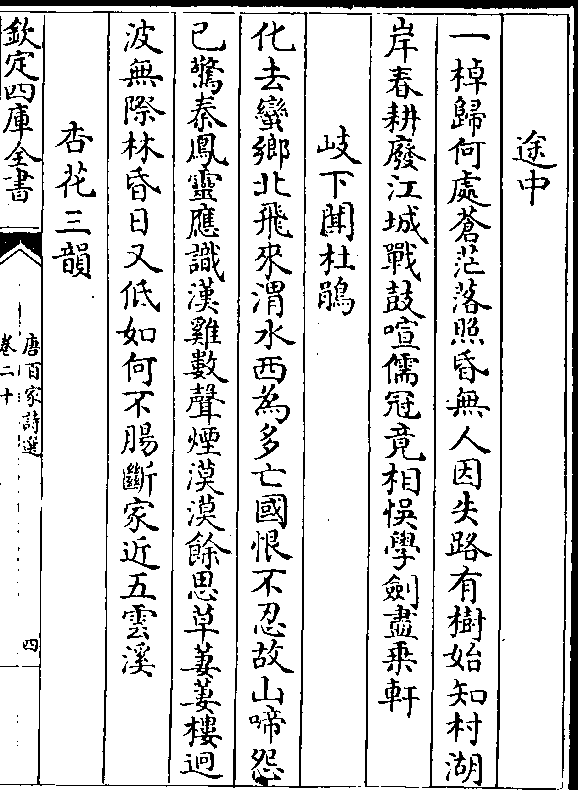 途中
一棹歸何處蒼茫落照昏無人因失路有樹始知村湖
岸春耕廢江城戰鼓喧儒冠竟相悞學劍盡乘軒
岐下聞杜鵑
化去蠻鄉北飛來渭水西為多亡國恨不忍故山啼怨
已驚秦鳳靈應識漢雞數聲煙漠漠餘思草萋萋樓迥
波無際林昏日又低如何不腸斷家近五雲溪
杏花三韻
欽定四庫全書
唐百家詩選
卷二十
四